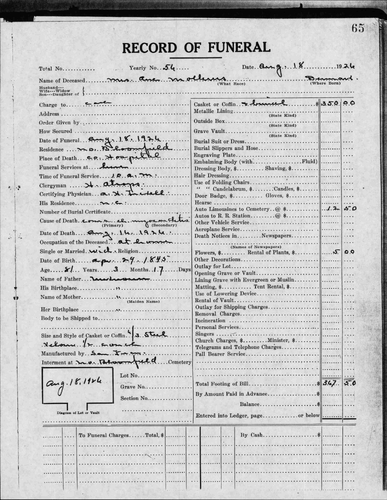 65
RECORD OF FUNERAL
Total No. Yearly No. 56 Date Aug. 18 1926
Name of Deceased Mrs. Ane
(What Race) (Where Born)
Husband— Wife—Widow Son—Daughter of
Charge to
Address
Order Given by
How Secured
Date of Funeral Aug. 18, 1926
Residence No. Bloomfield
Place of Death Co. Hospital
Funeral Services at
Time of Funeral Service 10 a.m.
Clergyman H.
Certifying Physician
His Residence N.C.
Number of Burial Certificate
Cause of Death myocarditis
(Primary) (Secondary)
Date of Death Aug. 14, 1926
Occupation of the Deceased at home
Single or Married wid. Religion
Date of Birth Apr. 27.
Age 81 Years 3 Months 17 Days
Name of Father unknown
His Birthplace
Name of Mother
(Maiden Name)
Her Birthplace
Body to be Shipped to
Size and Style of Casket or Coffin 6/3
Manufactured by
Interment at No. Bloomfield Cemetery
Lot No.
Grave No.
Section No.
Aug. 18, 1926
Diagram of Lot or Vault
Casket or Coffin $ 350 00
Metallic Lining
(State Kind)
Outside Box
(State Kind)
Grave Vault
(State Kind)
Burial Suit or Dress
Burial Slippers and Hose
Engraving Plate
Embalming Body (with Fluid)
Dressing Body, $ Shaving, $
Hair Dressing
Use of Folding Chairs
" " Candelabrum, $ Candles, $
Door Badge, $ Gloves, $
Hearse
Auto Limousines to Cemetery, @ $ 12 50
Autos to R. R. Station @ $
Other Vehicle Service
Aeroplane Service
Death Notices in Newspapers
(Names of Newspapers)
Flowers, $ Rental of Plants, $ 5 00
Other Decorations
Outlay for Lot
Opening Grave or Vault
Lining Grave with Evergreen or Muslin
Matting, $ Tent Rental, $
Use of Lowering Device
Rental of Vault
Outlay for Shipping Charges
Removal Charges
Incineration
Personal Services
Singers
Church Charges, $ Minister, $
Telegrams and Telephone Charges
Pall Bearer Service
Total Footing of Bill $ 367 50
By Amount Paid in Advance
Balance
Entered into Ledger, page or below
To Funeral Charges Total, $ By Cash $